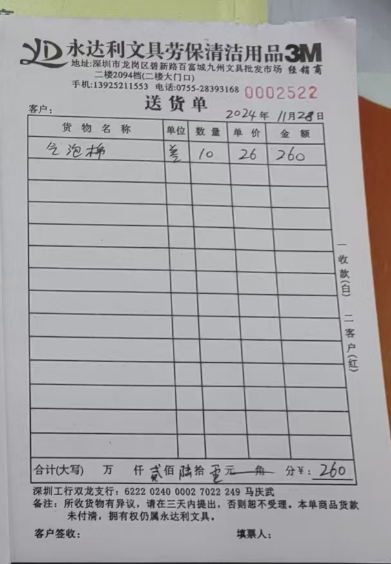 YD 永达利文具劳保清洁用品3M
地址:深圳市龙岗区碧新路百富城九州文具批发市场 经销商
二楼2094档(二楼大门口)
手机:13925211553 电话:0755-28393168 0002522
送货单
客户: 2024年 11月28日
货物名称 单位 数量 单价 金额
气泡棉 10 26 260
一收款(白) 二客户(红)
合计(大写) 万 仟 贰佰 陆拾 元 角 分¥: 260
深圳工行双龙支行: 6222 0240 0002 7022 249 马庆武
备注: 所收货物有异议, 请在三天内提出, 否则恕不受理。本单商品货款
未付清, 拥有权仍属永达利文具。
客户签收: 填票人: